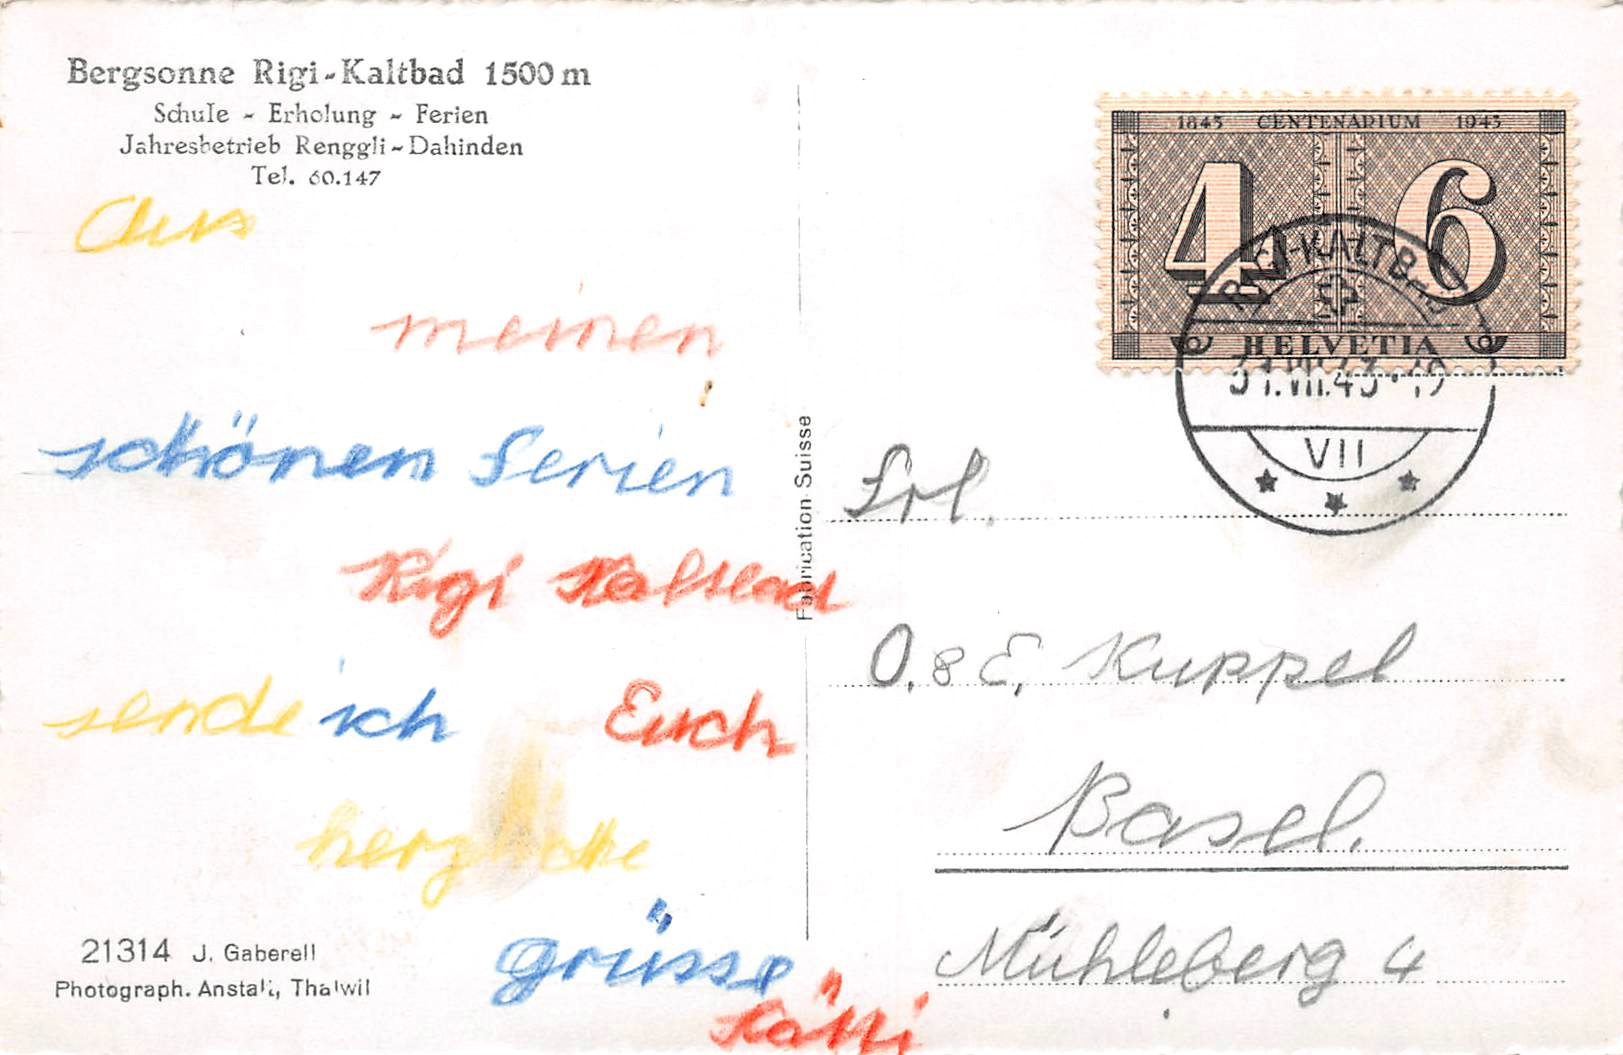 Bergsonne Rigi-Kaltbad 1500 m
Schule - Erholung - Ferien
Jahresbetrieb Renggli-Dahinden
Tel. 60.147
Aus
meinen
schönen Ferien
Rigi Kaltbad
sende ich Euch
herzliche
Grüsse
Kätti
21314 J. Gaberell
Photograph. Anstalt, Thalwil
Fabrication Suisse
1843 CENTENARIUM 1943
4 6
HELVETIA
RIGI-KALTBAD
31.VII.43.-19
VII
Frl.
O. & E. Kuppel
Basel.
Mühleberg 4